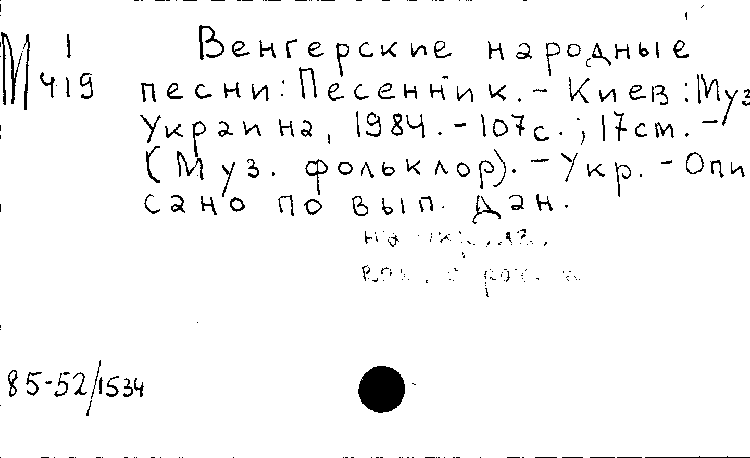 М 1
419
Венгерские народные
песни: Песенник. - Киев: Муз
Украина, 1984. - 107с.; 17см. -
(Муз. фольклор). - Укр. - Опи
сано по вып. дан.
85-52/1534